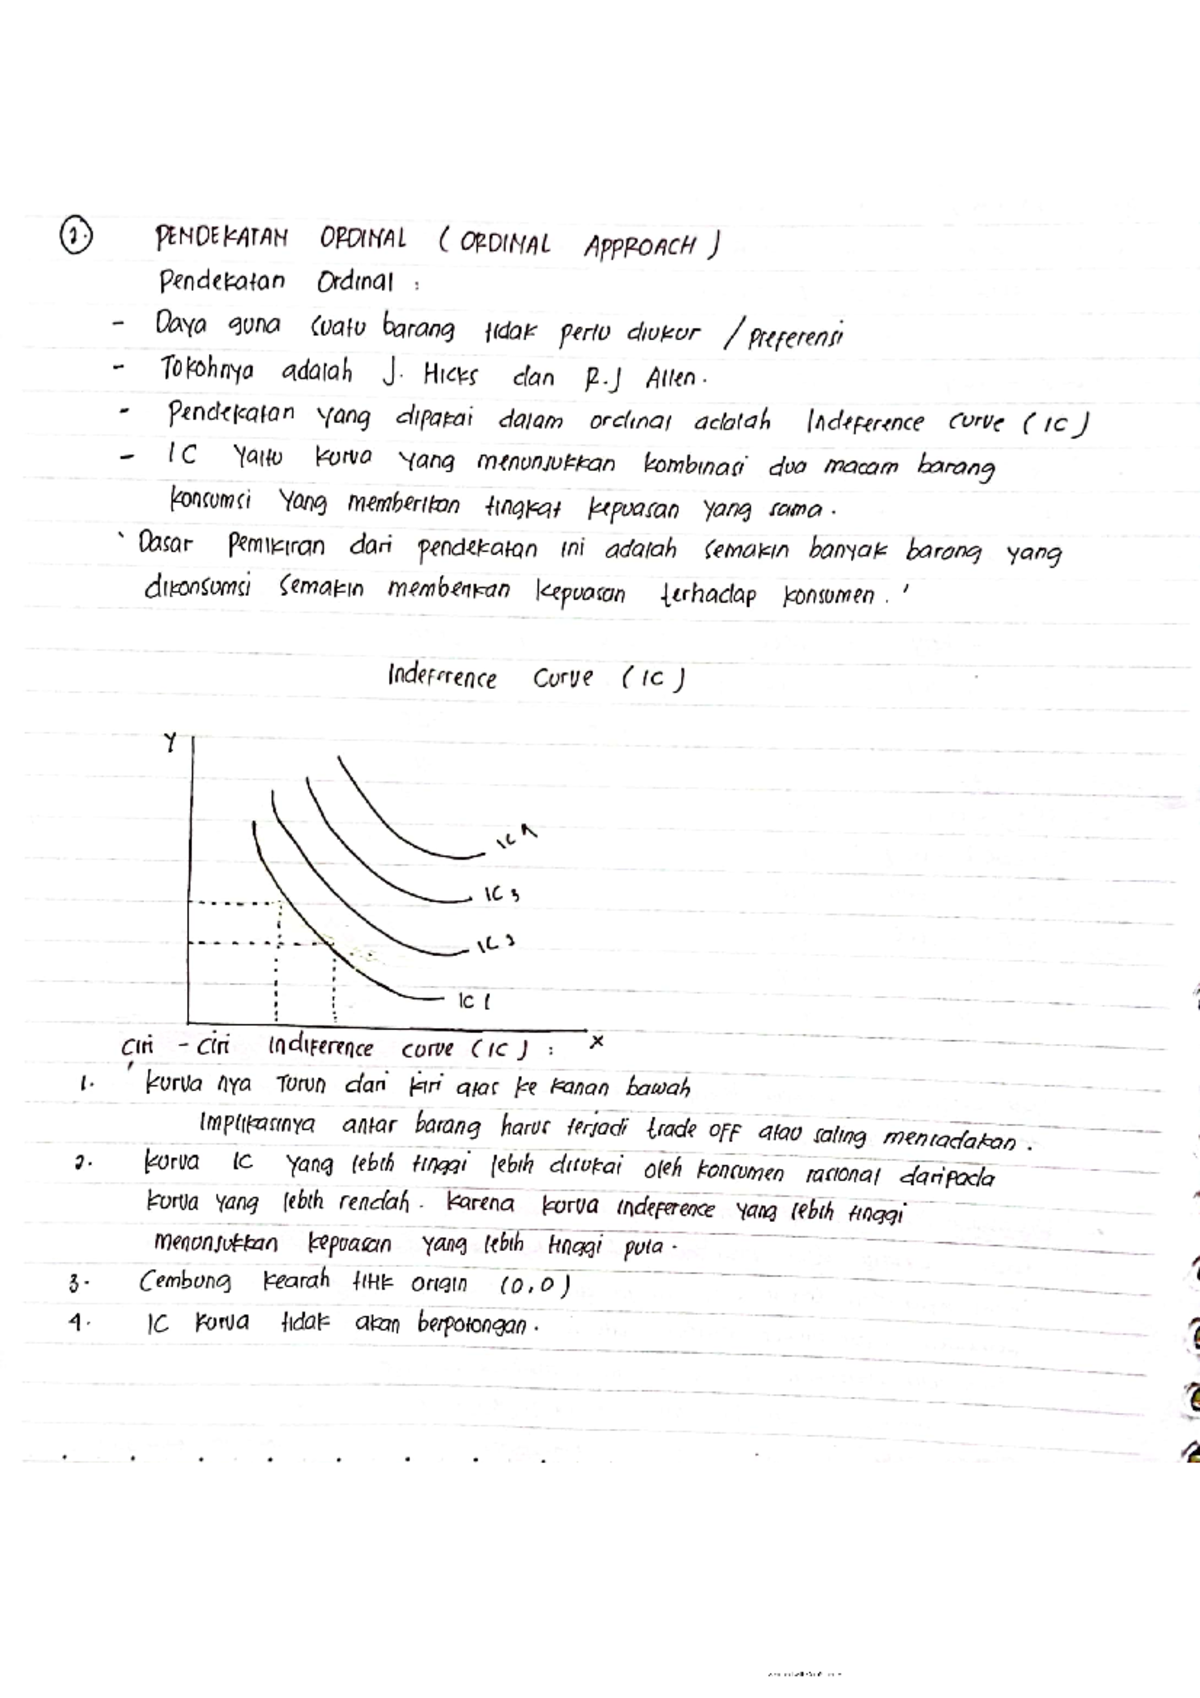 2. PENDEKATAN ORDINAL ( ORDINAL APPROACH )
Pendekatan Ordinal :
- Daya guna suatu barang tidak perlu diukur / preferensi
- Tokohnya adalah J. Hicks dan R.J Allen.
- Pendekatan yang dipakai dalam ordinal adalah Indeference curve ( IC )
- IC Yaitu kurva yang menunjukkan kombinasi dua macam barang
konsumsi yang memberikan tingkat kepuasan yang sama.
' Dasar Pemikiran dari pendekatan ini adalah semakin banyak barang yang
dikonsumsi semakin memberikan kepuasan terhadap konsumen. '
Indefrrence Curve ( IC )
Y
IC 4
IC 3
IC 2
IC 1
X
Ciri - Ciri Indiference curve ( IC ) :
1. kurva nya Turun dari kiri atas ke kanan bawah
Implikasinya antar barang harus terjadi trade off atau saling meniadakan.
2. kurva IC yang lebih tinggi lebih disukai oleh konsumen rasional daripada
kurva yang lebih rendah. karena kurva indeference yang lebih tinggi
menunjukkan kepuasan yang lebih tinggi pula.
3. Cembung kearah titik origin (0,0)
4. IC kurva tidak akan berpotongan.